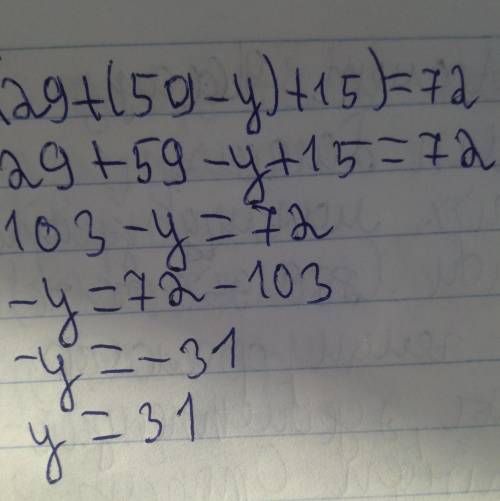 (29+(59-y)+15)=72
29+59-y+15=72
103-y=72
-y=72-103
-y=-31
y=31